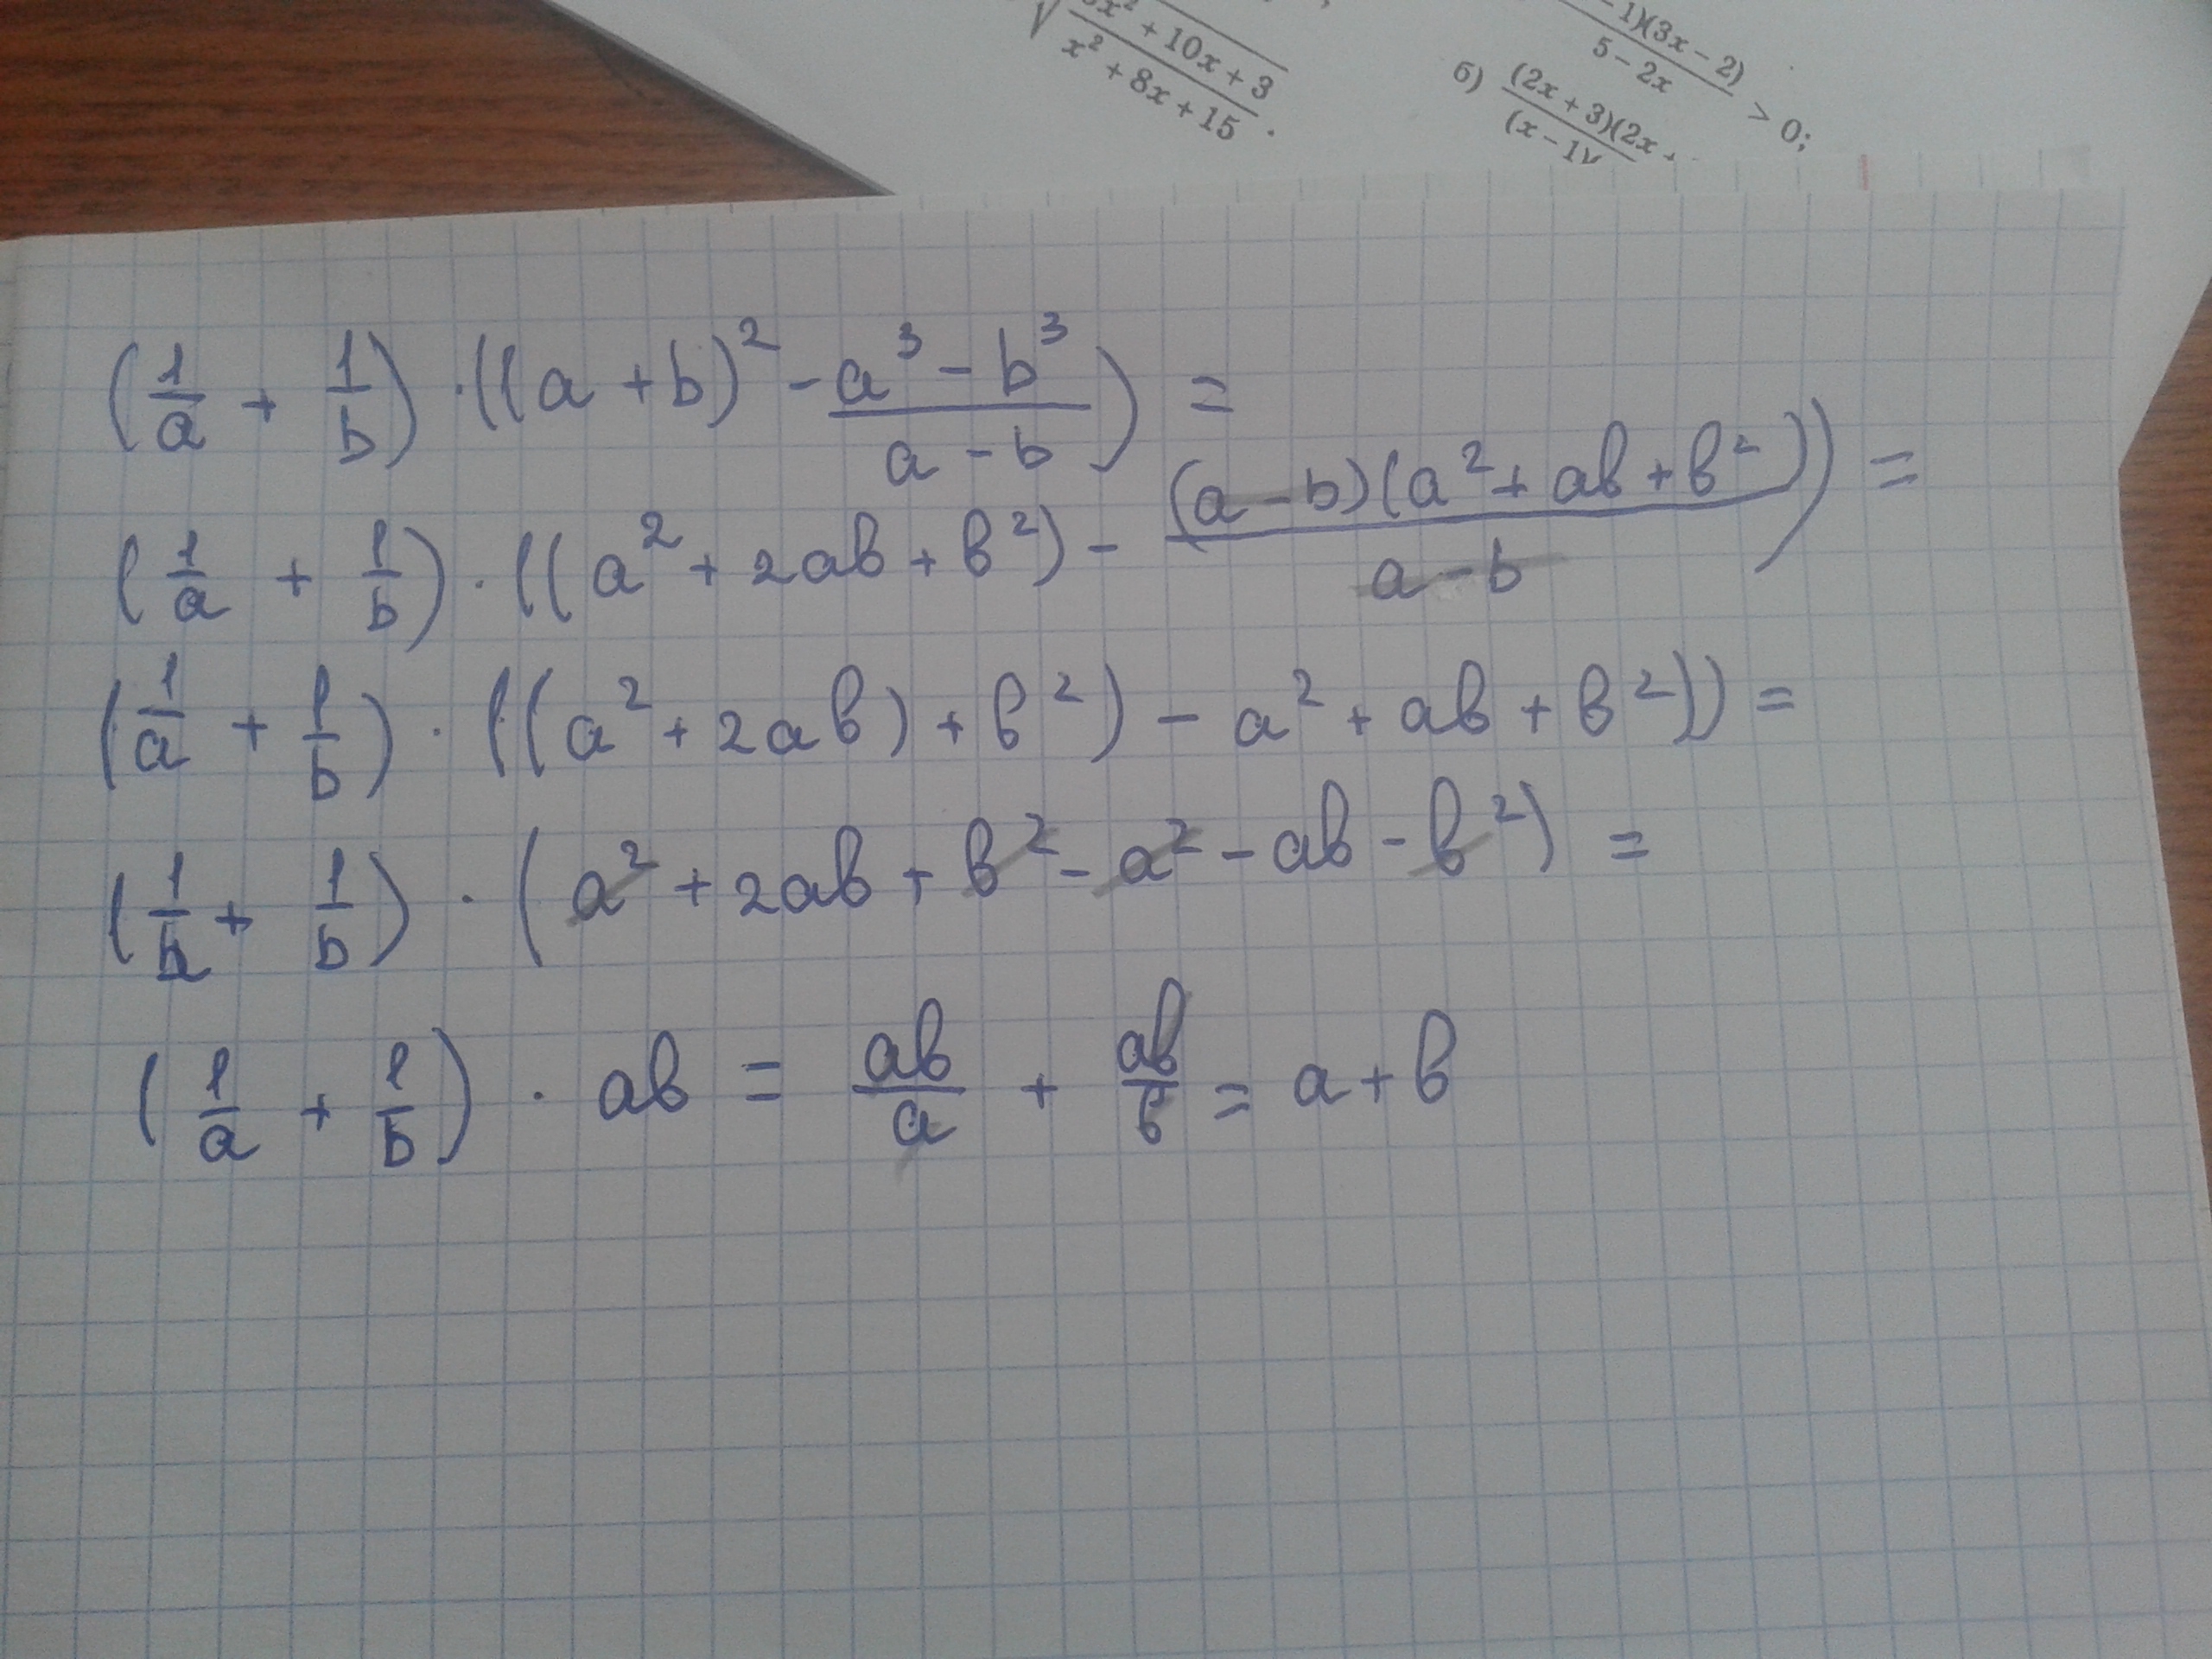 √(x² + 10x + 3)/(x² + 8x + 15).
1)(3x − 2)/(5 − 2x) > 0;
б) (2x + 3)(2x +/(x − 1)(
(1/a + 1/b) · ((a + b)² - (a³ - b³)/(a - b)) =
(1/a + 1/b) · ((a² + 2ab + b²) - (a - b)(a² + ab + b²))/(a - b) =
(1/a + 1/b) · ((a² + 2ab) + b²) - a² + ab + b²)) =
(1/a + 1/b) · (a² + 2ab + b² - a² - ab - b²) =
(1/a + 1/b) · ab = ab/a + ab/b = a + b